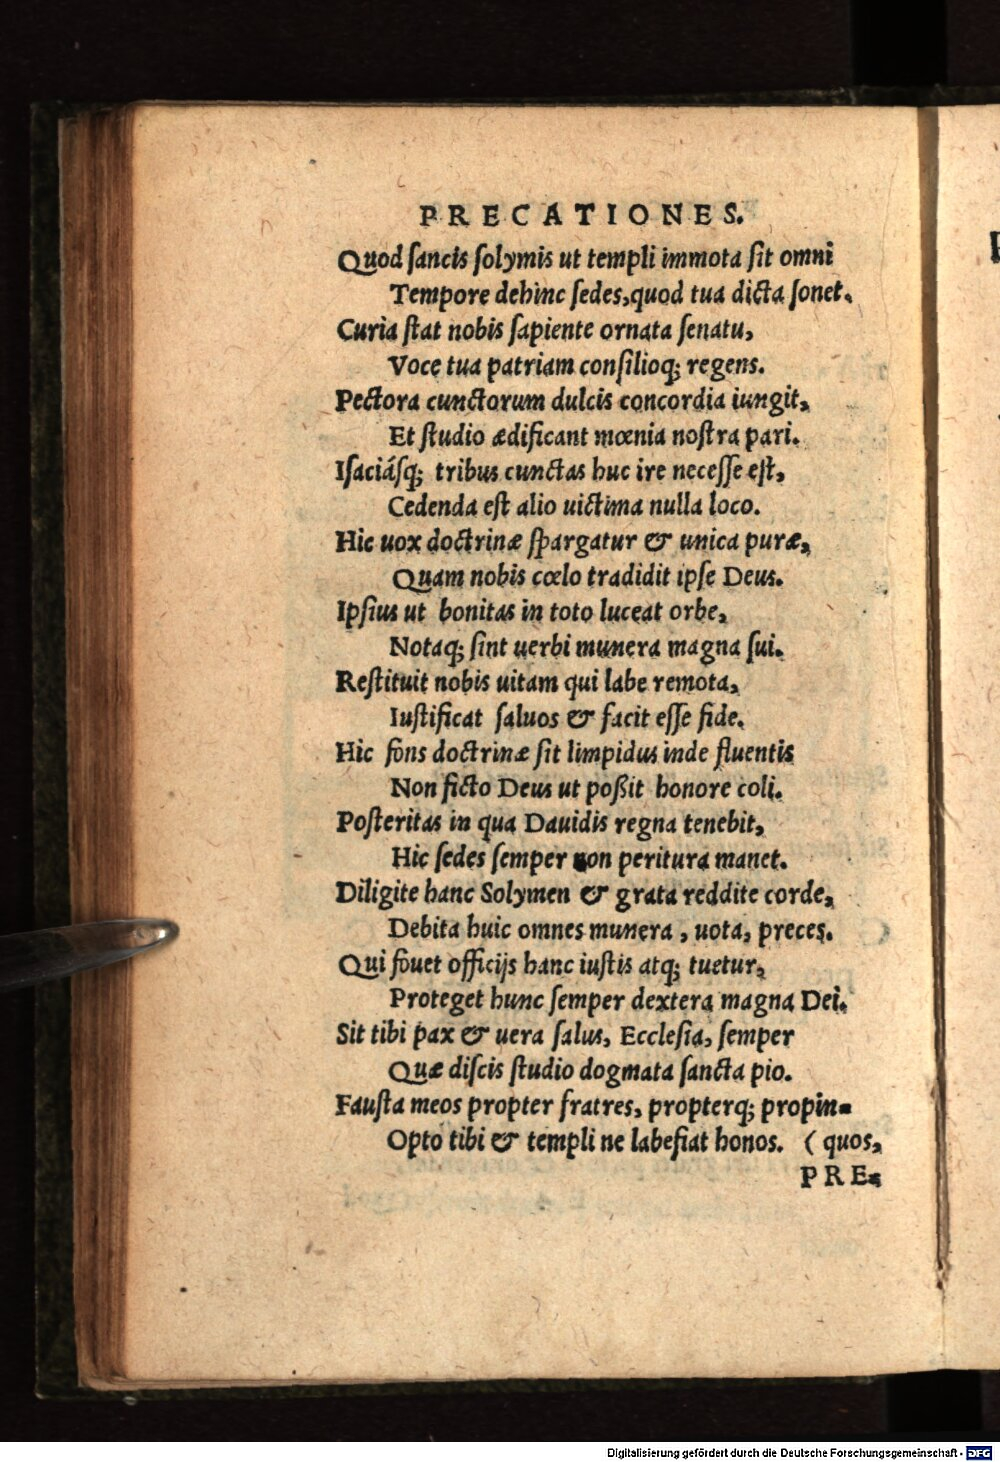 PRECATIONES.
Quod sancis solymis ut templi immota sit omni
Tempore dehinc sedes, quod tua dicta sonet.
Curia stat nobis sapiente ornata senatu,
Voce tua patriam consilioq; regens.
Pectora cunctorum dulcis concordia iungit,
Et studio ædificant mœnia nostra pari.
Isaciásq; tribus cunctas huc ire necesse est,
Cedenda est alio uictima nulla loco.
Hic uox doctrinæ spargatur & unica puræ,
Quam nobis cœlo tradidit ipse Deus.
Ipsius ut bonitas in toto luceat orbe,
Notaq; sint uerbi munera magna sui.
Restituit nobis uitam qui labe remota,
Iustificat saluos & facit esse fide.
Hic fons doctrinæ sit limpidus inde fluentis
Non ficto Deus ut poßit honore coli.
Posteritas in qua Dauidis regna tenebit,
Hic sedes semper non peritura manet.
Diligite hanc Solymen & grata reddite corde,
Debita huic omnes munera, uota, preces.
Qui fouet officijs hanc iustis atq; tuetur,
Proteget hunc semper dextera magna Dei.
Sit tibi pax & uera salus, Ecclesia, semper
Quæ discis studio dogmata sancta pio.
Fausta meos propter fratres, propterq; propin-
Opto tibi & templi ne labefiat honos. (quos,
PRE-
Digitalisierung gefördert durch die Deutsche Forschungsgemeinschaft - DFG